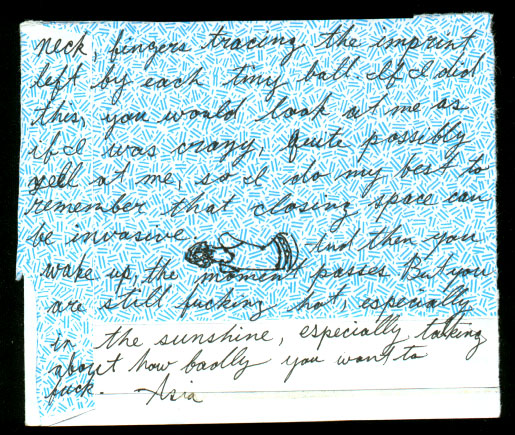 neck, fingers tracing the imprint
left by each tiny ball. If I did
this, you would look at me as
if I was crazy, quite possibly
yell at me, so I do my best to
remember that closing space can
be invasive. And then you
wake up, the moment passes. But you
are still fucking hot, especially
in the sunshine, especially talking
about how badly you want to
fuck. -Asia